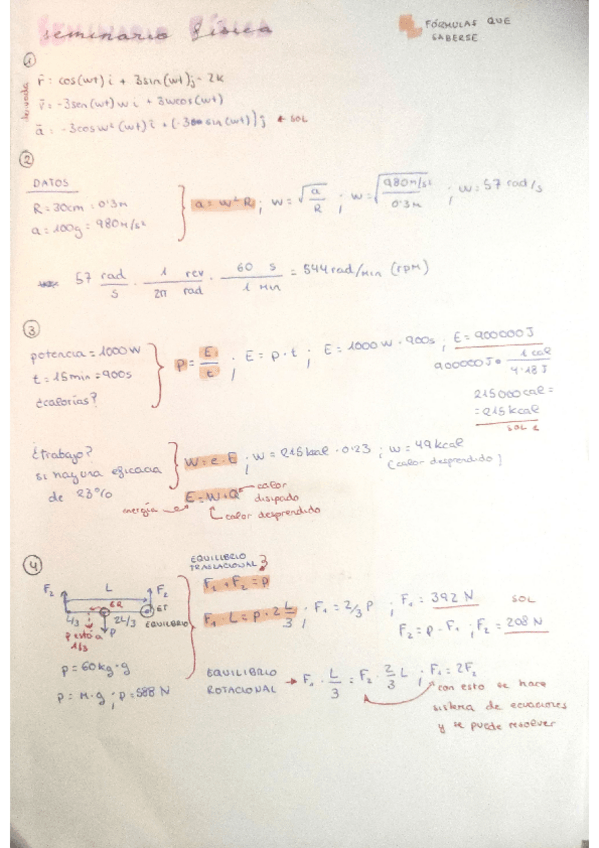 seminario Física
FÓRMULAS QUE
SABERSE
①
derivada
r̄ = cos(wt) i + 3sin(wt)j - 2k
v̄ = -3sen(wt) w i + 3wcos(wt)
ā = -3cos w² (wt) i + (-3 sin(wt)) j ← SOL
②
DATOS
R = 30cm = 0'3m
a = 100g = 980m/s²
a = w² R ; w = √a/R ; w = √980m/s²/0'3m ; w = 57 rad/s
57 rad/s · 1 rev/2π rad · 60 s/1 min = 544 rad/min (rpm)
③
potencia = 1000W
t = 15min = 900s
¿calorías?
P = E/t ; E = p · t ; E = 1000W · 900s ; E = 900000J
900000J · 1 cal/4'18J
215000cal =
= 215kcal
SOL
¿trabajo?
si hay una eficacia
de 23%
W = e · E ; W = 215kcal · 0'23 ; w = 49kcal
(calor desprendido)
energía ← E = W + Q → calor
disipado
calor desprendido
④
EQUILIBRIO
TRASLACIONAL
F₂ L F₂
L/3 2L/3 EQUILIBRIO
p está a
1/3
P
p = 60kg · g
p = m · g ; p = 588 N
F₁ + F₂ = p
F₁ · L = p · 2L/3 ; F₁ = 2/3 P ; F₁ = 392 N SOL
F₂ = p - F₁ ; F₂ = 208 N
EQUILIBRIO
ROTACIONAL → F₁ · L/3 = F₂ · 2/3 L ; F₁ = 2F₂
con esto se hace
sistema de ecuaciones
y se puede resolver